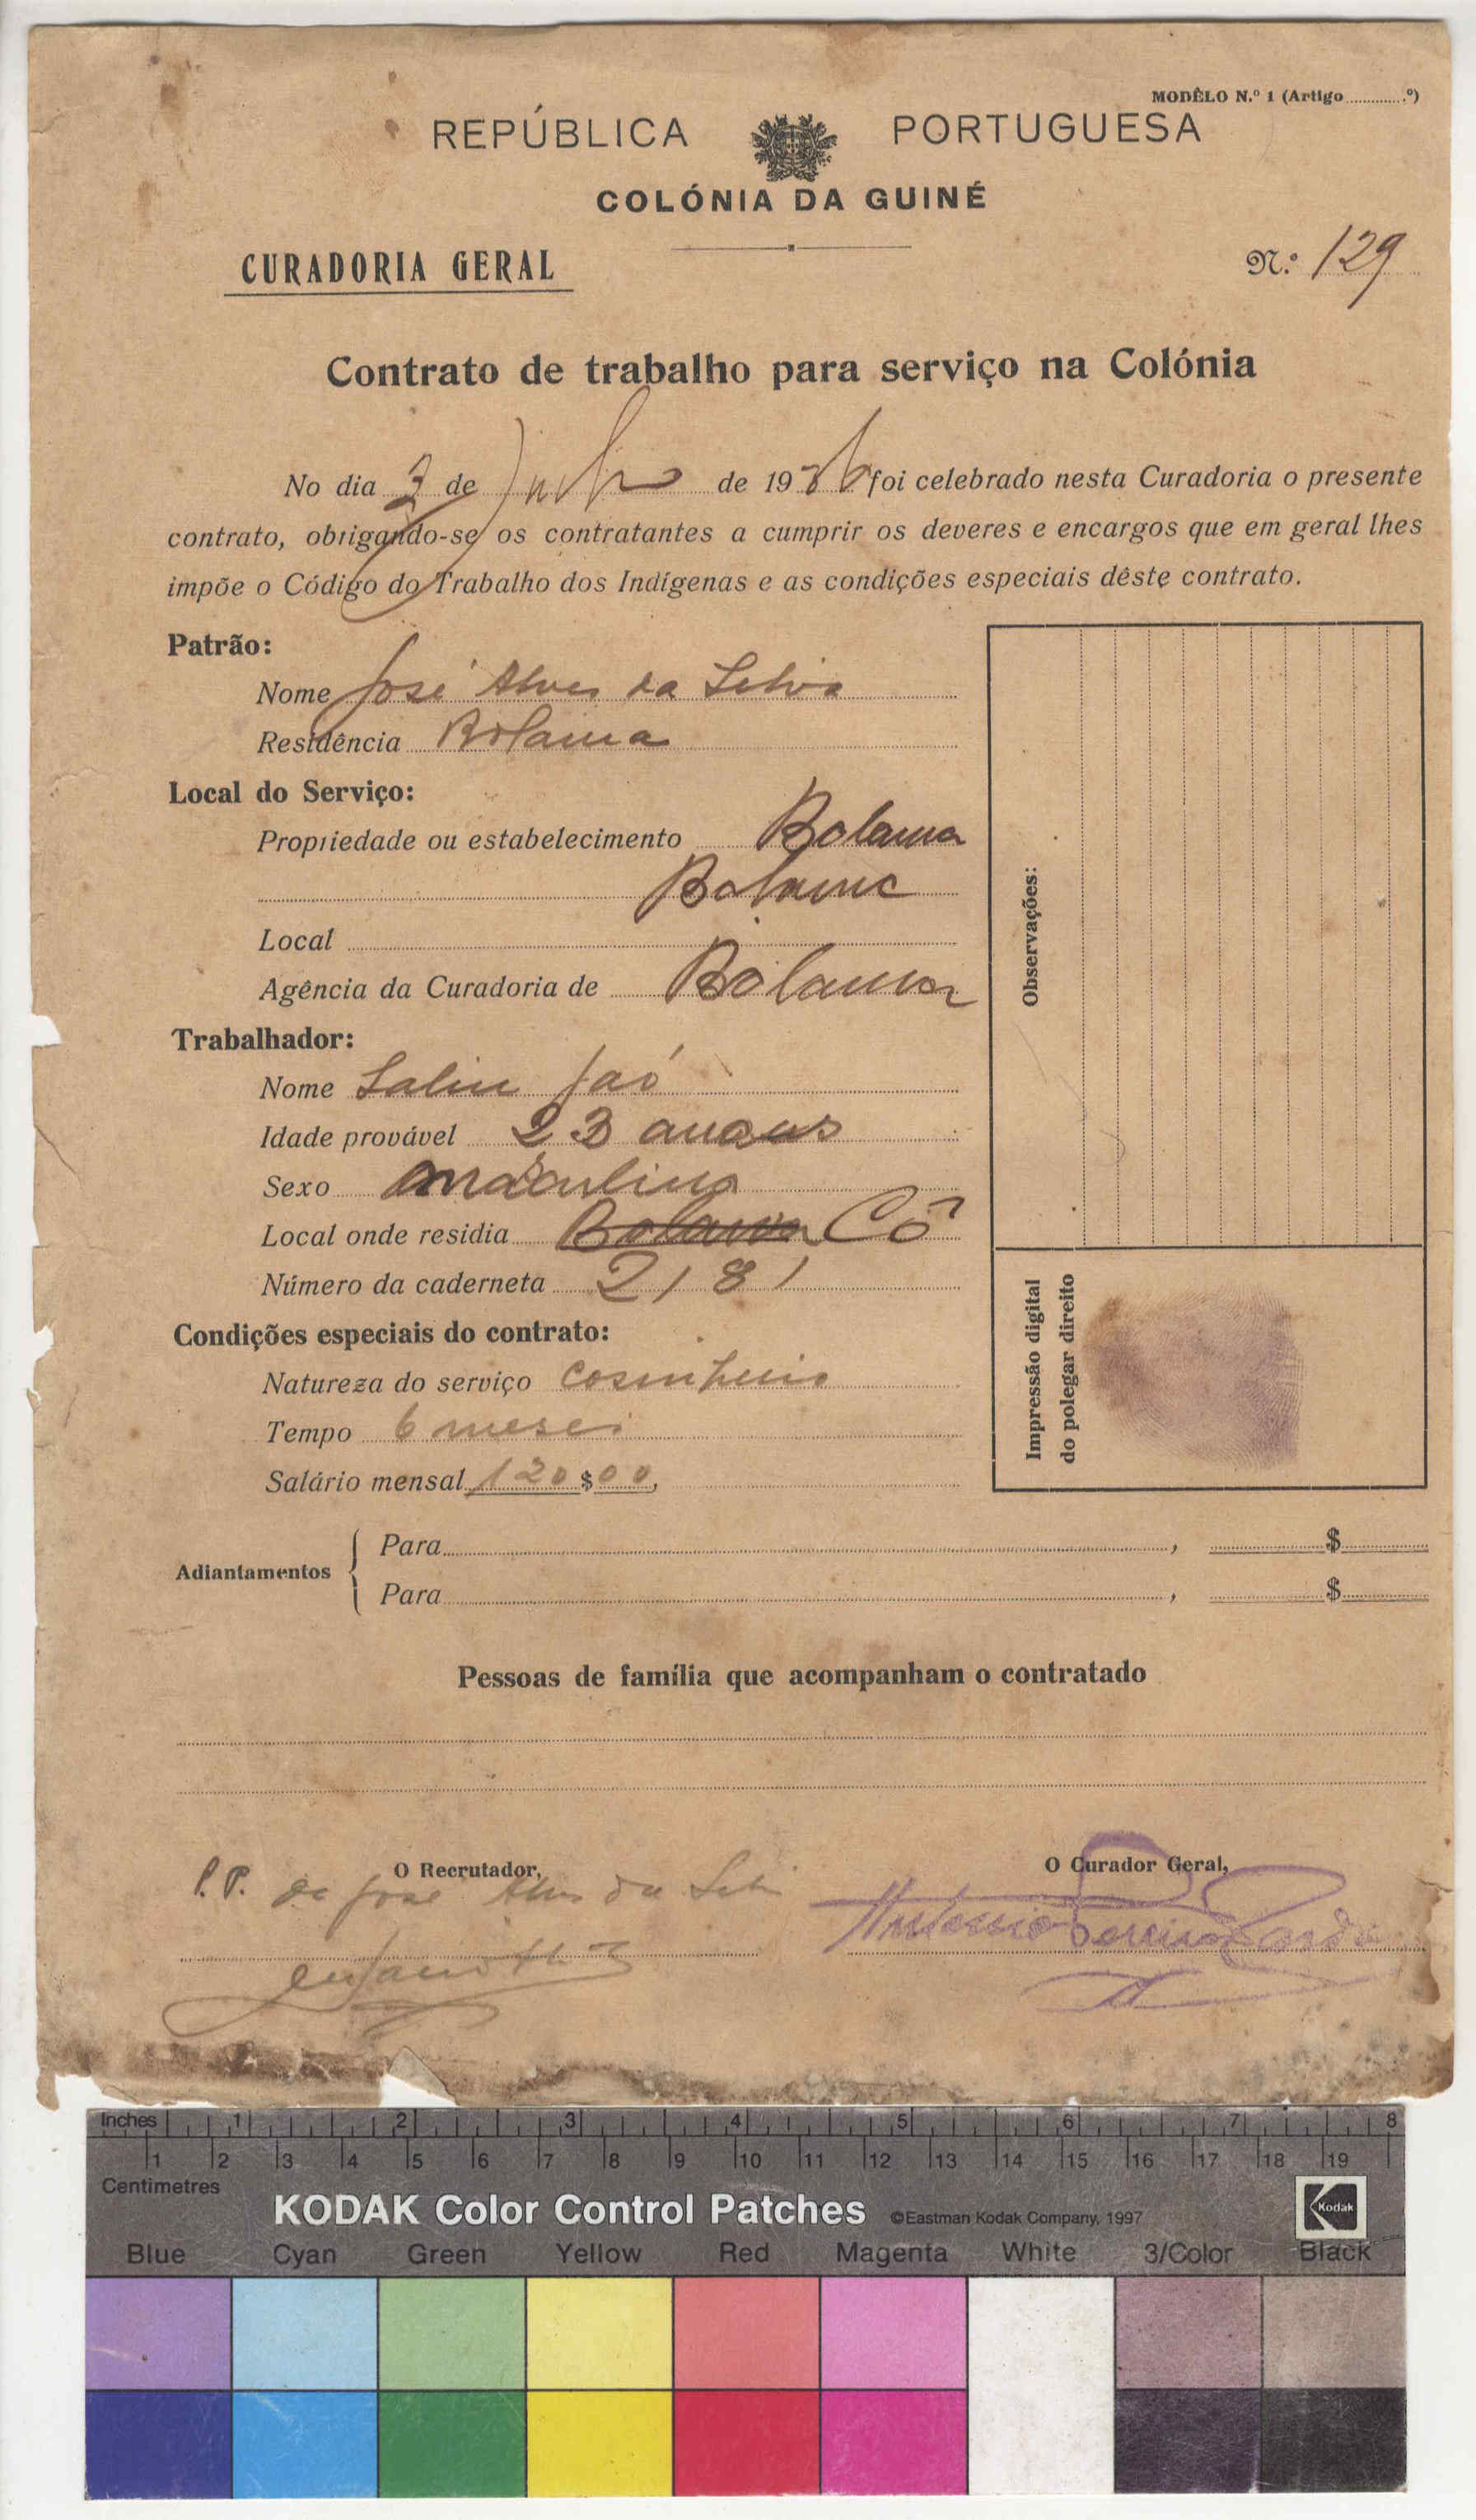 MODÊLO N.º 1 (Artigo ............º)
REPÚBLICA PORTUGUESA
COLÓNIA DA GUINÉ
CURADORIA GERAL
N.º 129
Contrato de trabalho para serviço na Colónia
No dia 3 de Julho de 1936 foi celebrado nesta Curadoria o presente
contrato, obrigando-se os contratantes a cumprir os deveres e encargos que em geral lhes
impõe o Código do Trabalho dos Indígenas e as condições especiais dêste contrato.
Patrão:
Nome José Alves da Silva
Residência Bolama
Local do Serviço:
Propriedade ou estabelecimento Bolama
Bolama
Local
Agência da Curadoria de Bolama
Trabalhador:
Nome Saliu Jaó
Idade provável 23 anos
Sexo masculino
Local onde residia Bolama Có
Número da caderneta 2181
Condições especiais do contrato:
Natureza do serviço cosinheiro
Tempo 6 meses
Salário mensal 120$00,
Observações:
Impressão digital
do polegar direito
Adiantamentos
Para , $
Para , $
Pessoas de família que acompanham o contratado
O Recrutador,
P.P. de José Alves da Silva
O Curador Geral,
Antonio Pereira Cardoso
Inches 1 2 3 4 5 6 7 8
1 2 3 4 5 6 7 8 9 10 11 12 13 14 15 16 17 18 19
Centimetres
KODAK Color Control Patches ©Eastman Kodak Company, 1997 Kodak
Blue Cyan Green Yellow Red Magenta White 3/Color Black